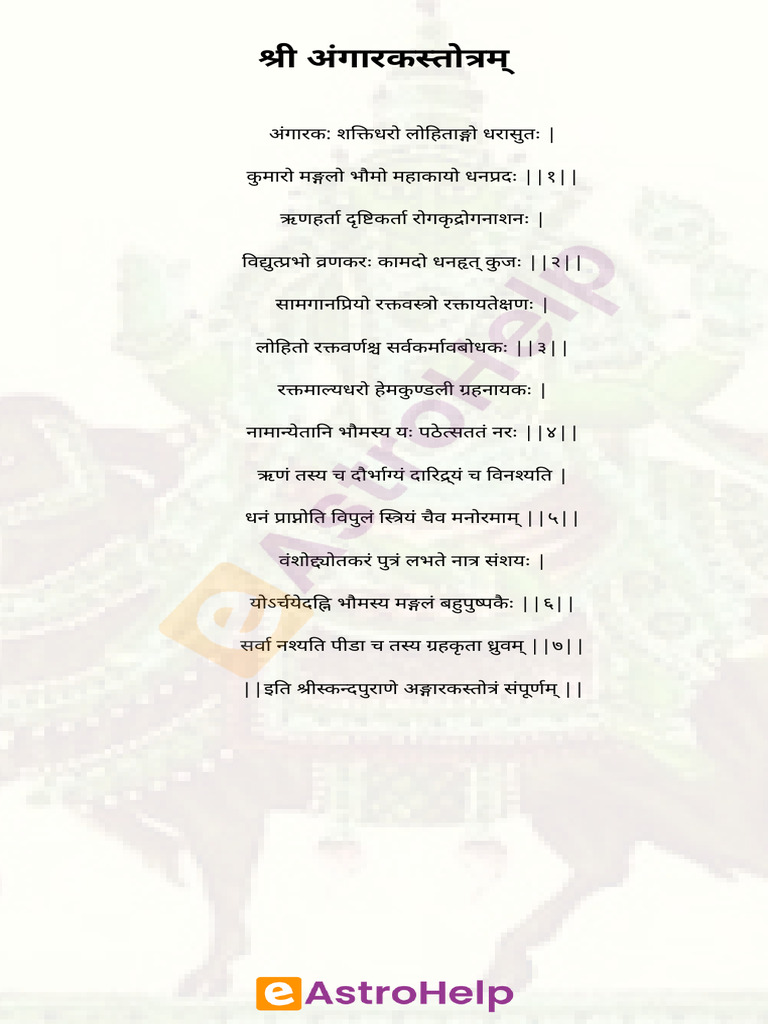 श्री अंगारकस्तोत्रम्
अंगारक: शक्तिधरो लोहिताङ्गो धरासुतः |
कुमारो मङ्गलो भौमो महाकायो धनप्रदः ||१||
ऋणहर्ता दृष्टिकर्ता रोगकृद्रोगनाशनः |
विद्युत्प्रभो व्रणकरः कामदो धनहृत् कुजः ||२||
सामगानप्रियो रक्तवस्त्रो रक्तायतेक्षणः |
लोहितो रक्तवर्णश्च सर्वकर्मावबोधकः ||३||
रक्तमाल्यधरो हेमकुण्डली ग्रहनायकः |
नामान्येतानि भौमस्य यः पठेत्सततं नरः ||४||
ऋणं तस्य च दौर्भाग्यं दारिद्र्यं च विनश्यति |
धनं प्राप्नोति विपुलं स्त्रियं चैव मनोरमाम् ||५||
वंशोद्द्योतकरं पुत्रं लभते नात्र संशयः |
योऽर्चयेदह्नि भौमस्य मङ्गलं बहुपुष्पकैः ||६||
सर्वा नश्यति पीडा च तस्य ग्रहकृता ध्रुवम् ||७||
||इति श्रीस्कन्दपुराणे अङ्गारकस्तोत्रं संपूर्णम् ||
e AstroHelp
e AstroHelp